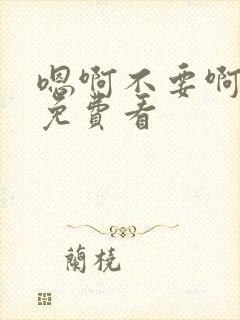 嗯啊不要啊
免费看
蘭橈